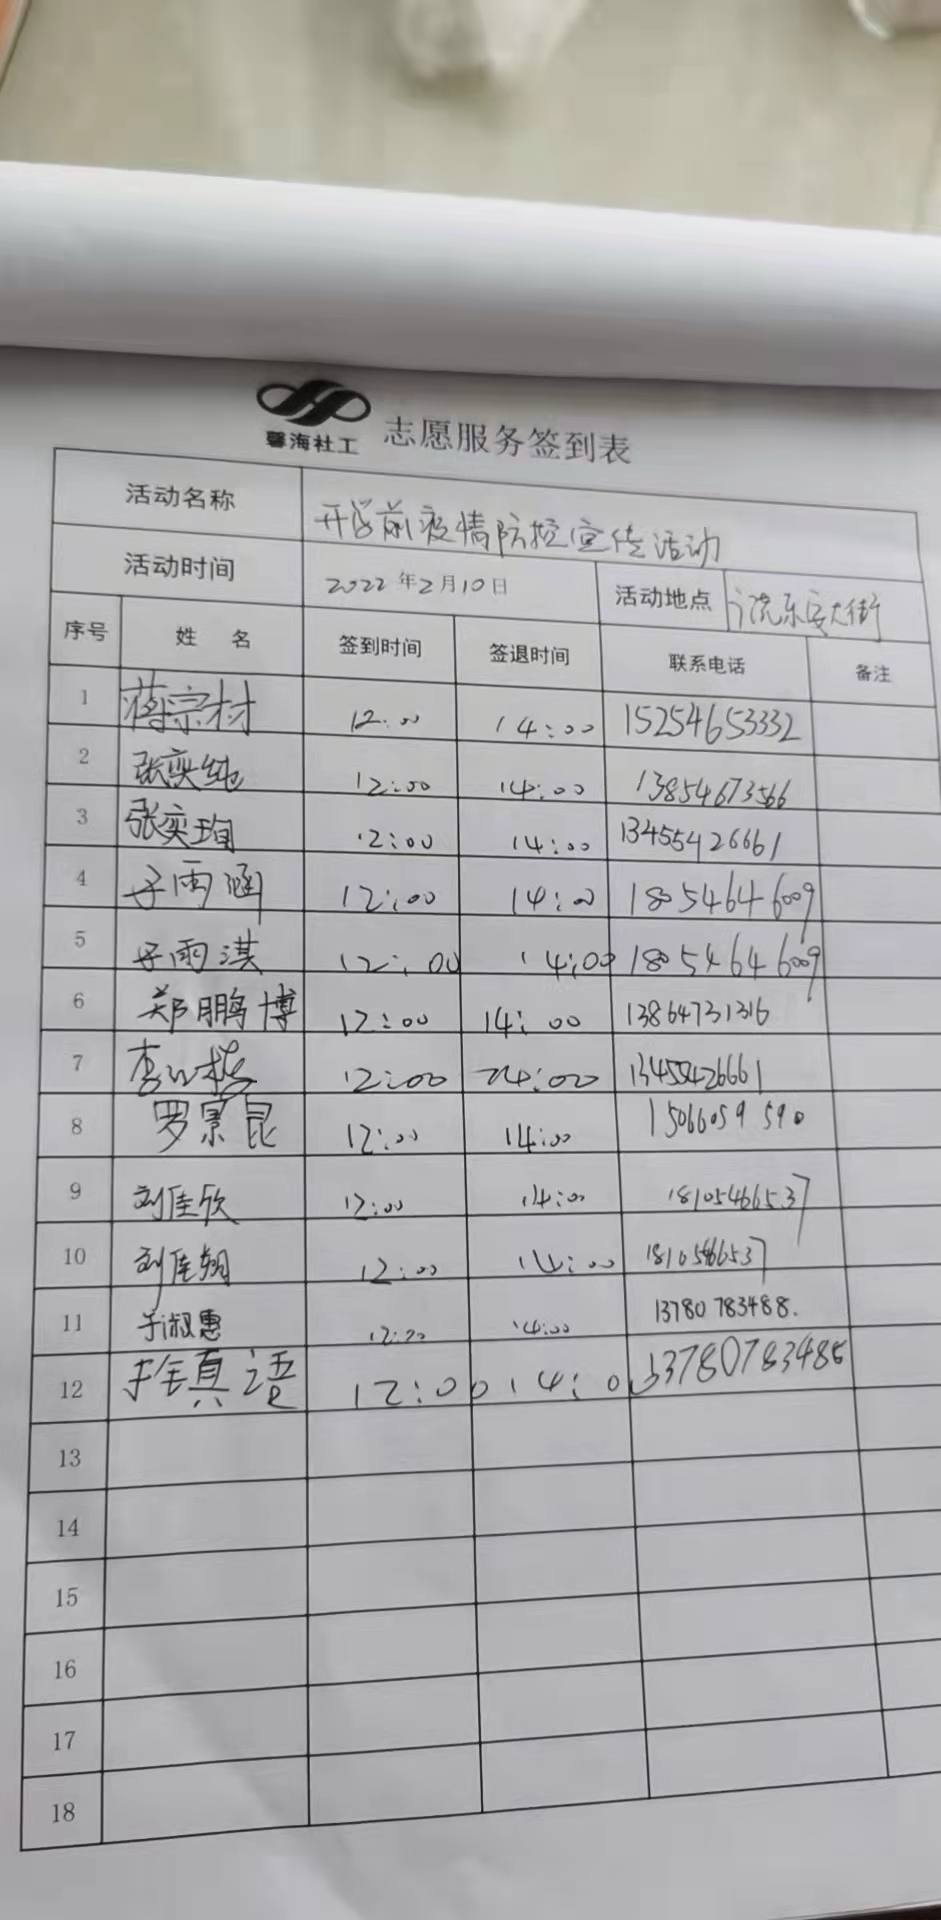 馨海社工 志愿服务签到表
活动名称 开学前疫情防控宣传活动
活动时间 2022年2月10日 活动地点 东安大街
序号 姓 名 签到时间 签退时间 联系电话 备注
1 蒋宗材 12:00 14:00 15254653332
2 张奕纯 12:00 14:00 13854673566
3 张奕珣 12:00 14:00 13455426661
4 雨涵 12:00 14:00 18054646009
5 雨淇 12:00 14:00 18054646009
6 郑鹏博 12:00 14:00 13864731316
7 李 12:00 14:00 13455426661
8 罗景昆 12:00 14:00 15066059590
9 刘佳欣 12:00 14:00 18105466537
10 刘佳翔 12:00 14:00
11 于淑惠 14:00 13780783488.
12 真语 12:00 14:0
13
14
15
16
17
18